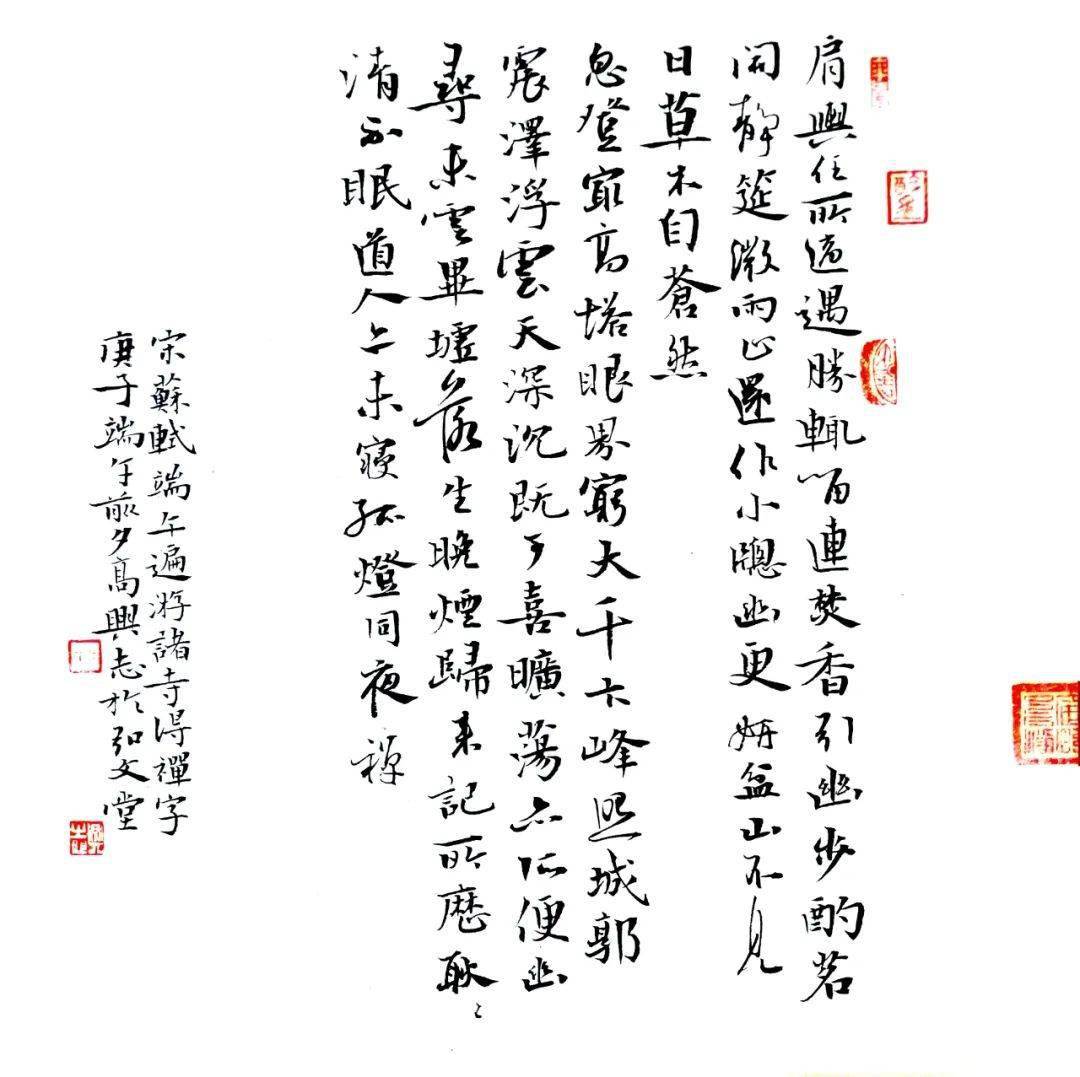 肩輿任所適遇勝輒留連焚香引幽步酌茗
開靜筵微雨止還作小牕幽更妍盆山不見
日草木自蒼然
忽登冣高塔眼界窮大千卞峰照城郭
震澤浮雲天深沉既可喜曠蕩亦所便幽
尋未雲畢墟落生晚煙歸來記所歷耿々
清不眠道人亦未寢孤燈同夜禪
宋蘇軾端午遍游諸寺得禪字
庚子端午前夕高興志於弘文堂